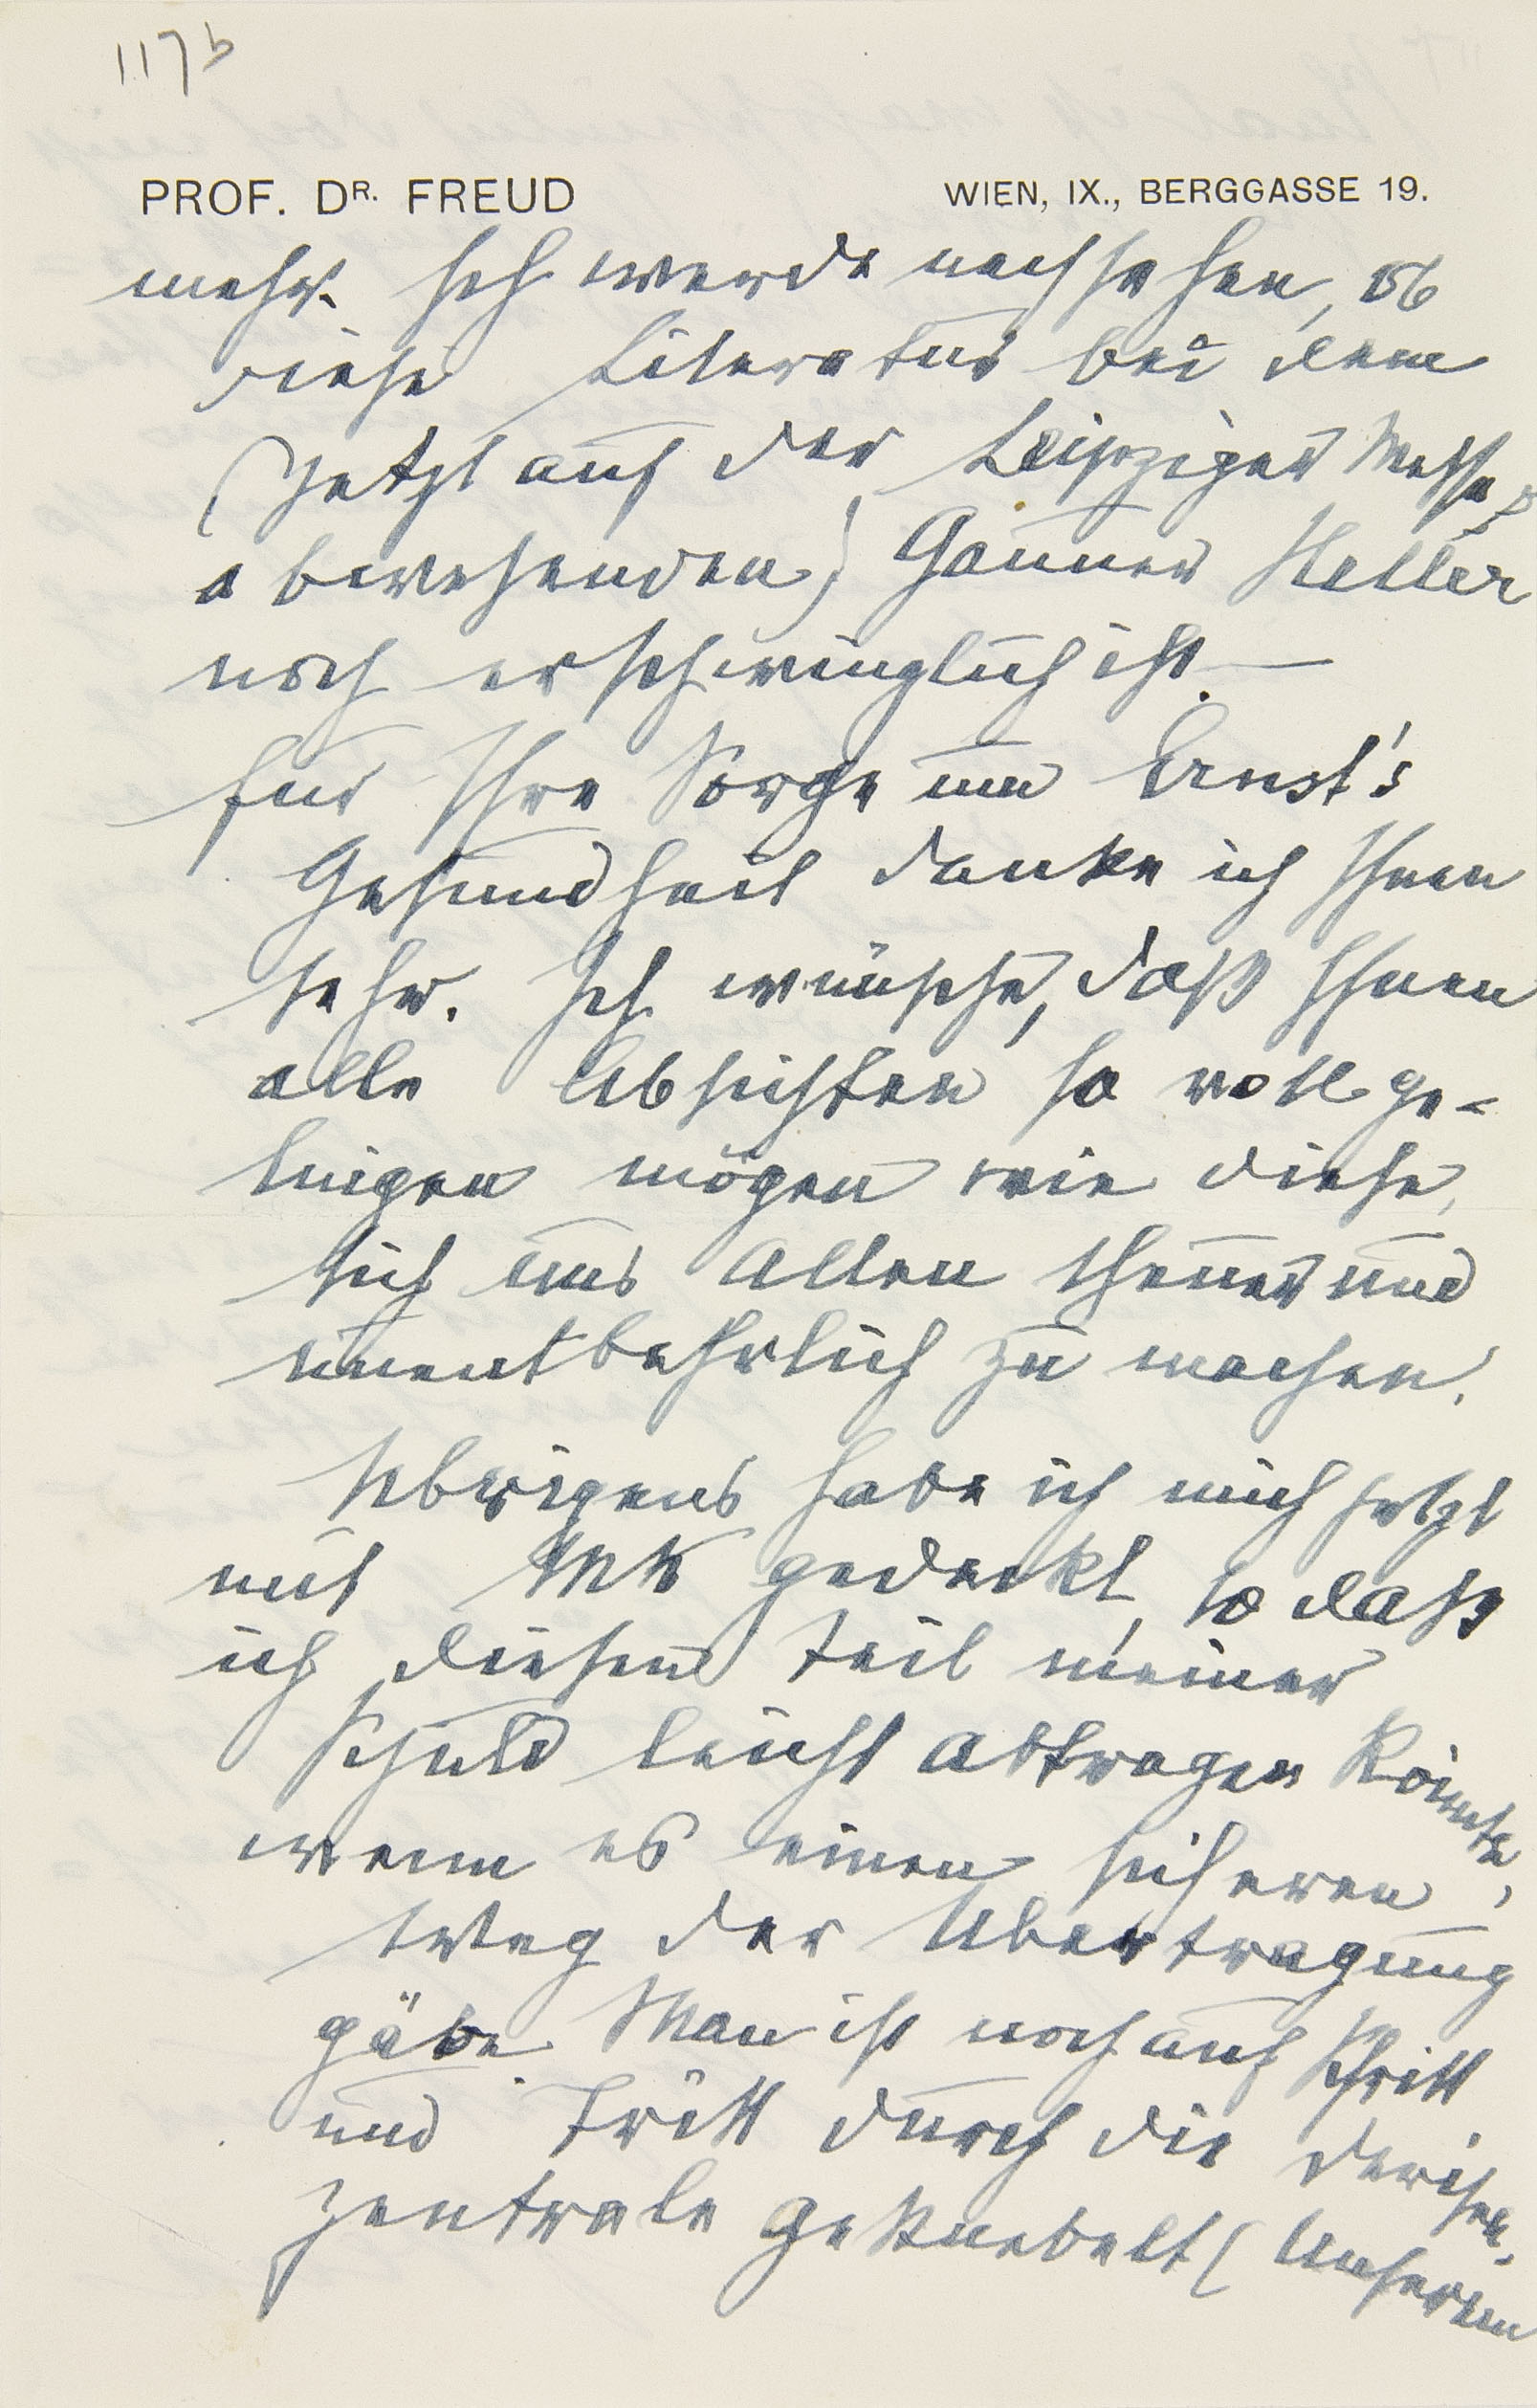 117b
PROF. DR. FREUD
WIEN, IX., BERGGASSE 19.
mehr. Ich werde nachsehen, ob
diese Literatur bei dem
(jetzt auf der Leipziger Messe
abwesenden) Gauner Heller
noch erschwinglich ist. —
Für Ihre Sorge um Ernst's
Gesundheit danke ich Ihnen
sehr. Ich wünsche, daß Ihnen
alle Absichten so voll ge-
lingen mögen wie diese,
sich uns Allen theuer und
unentbehrlich zu machen.
Uebrigens habe ich mich jetzt
mit Mk gedeckt, so daß
ich diesen Teil meiner
Schuld leicht abtragen könnte,
wenn es einen sicheren
Weg der Übertragung
gäbe. Man ist noch auf Schritt
und Tritt durch die Devisen-
zentrale geknebelt (Unserem